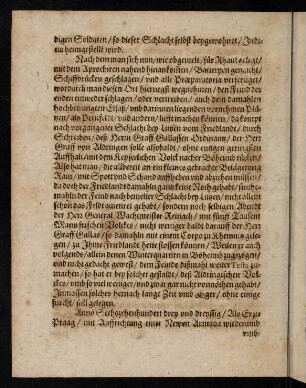 digen Soldaten / so dieser Schlacht selbst beygewohnet / Judi-
cio heimgestellt wird.
Nach dem man sich nun / wie obgemelt / für Rhain gelegt /
mit dem Aprochiren nahend hinan kom̃en / Batteryen gemacht /
Schiffbrücken geschlagen / vnd alle Præparatoria verfertiget /
worduch man diesen Ort hinweg
den Feind der
enden entweder schlagen / oder vertreiben / auch dem damahlen
hochbetrangten Elsaß / vnd darinnen liegenden vornehmen Plä-
tzen / als Benfeldt / vnd andern / lufft machen köndte / da kompt
nach vorgangener Schlacht bey Lützen vom Friedland / durch
Schreiben / deß Herrn Graff Gallassen Ordinantz / der Herr
Graff von Aldringen solle alsobaldt / ohne einigen geringsten
Auffhalt / mit dem Keyserlichen Volck nacher Böheimb rücken /
Also hat man / die allbereit an ein kleines gebrachte Belägerung
Rain / mit Spott vnd Schand auffheben vnd abziehen müssen /
da doch der Friedland damahln gantz keine Noth gehabt / sinte-
mahln der Feind nach beweiter Schlacht bey Lützen / nicht allein
schon das Feld quittiret gehabt / sondern noch selbigen Abendt
der Herr General Wachtmeister Reinach / mit fünff Tausent
Mann frischen Volckes / nicht weniger baldt darauff der Herr
Graff Gallas / so damahln mit einem Corpo zu Kemnitz gele-
gen / zu Ihme Friedlandt hette stossen können / Weilen er auch
volgends / allein denen Winterquartirn in Böheimb zugezogen /
vnd nicht gedacht gewest / dem Feinde dißmahl weiter Teste zu-
machen / so hat er bey solcher gestaldt / deß Aldringischen Vol-
ckes / vmb so viel weniger / vnd zwar gar nicht vonnöthen gehabt /
Inmassen solches hernach lange Zeit vmb Eger / ohne einige
furcht / still gelegen.
Anno Sechzehenhundert drey vnd dreyssig / Als Er zu
Praag / mit Auffrichtung einer Newen Armada wiederumb
vmb-